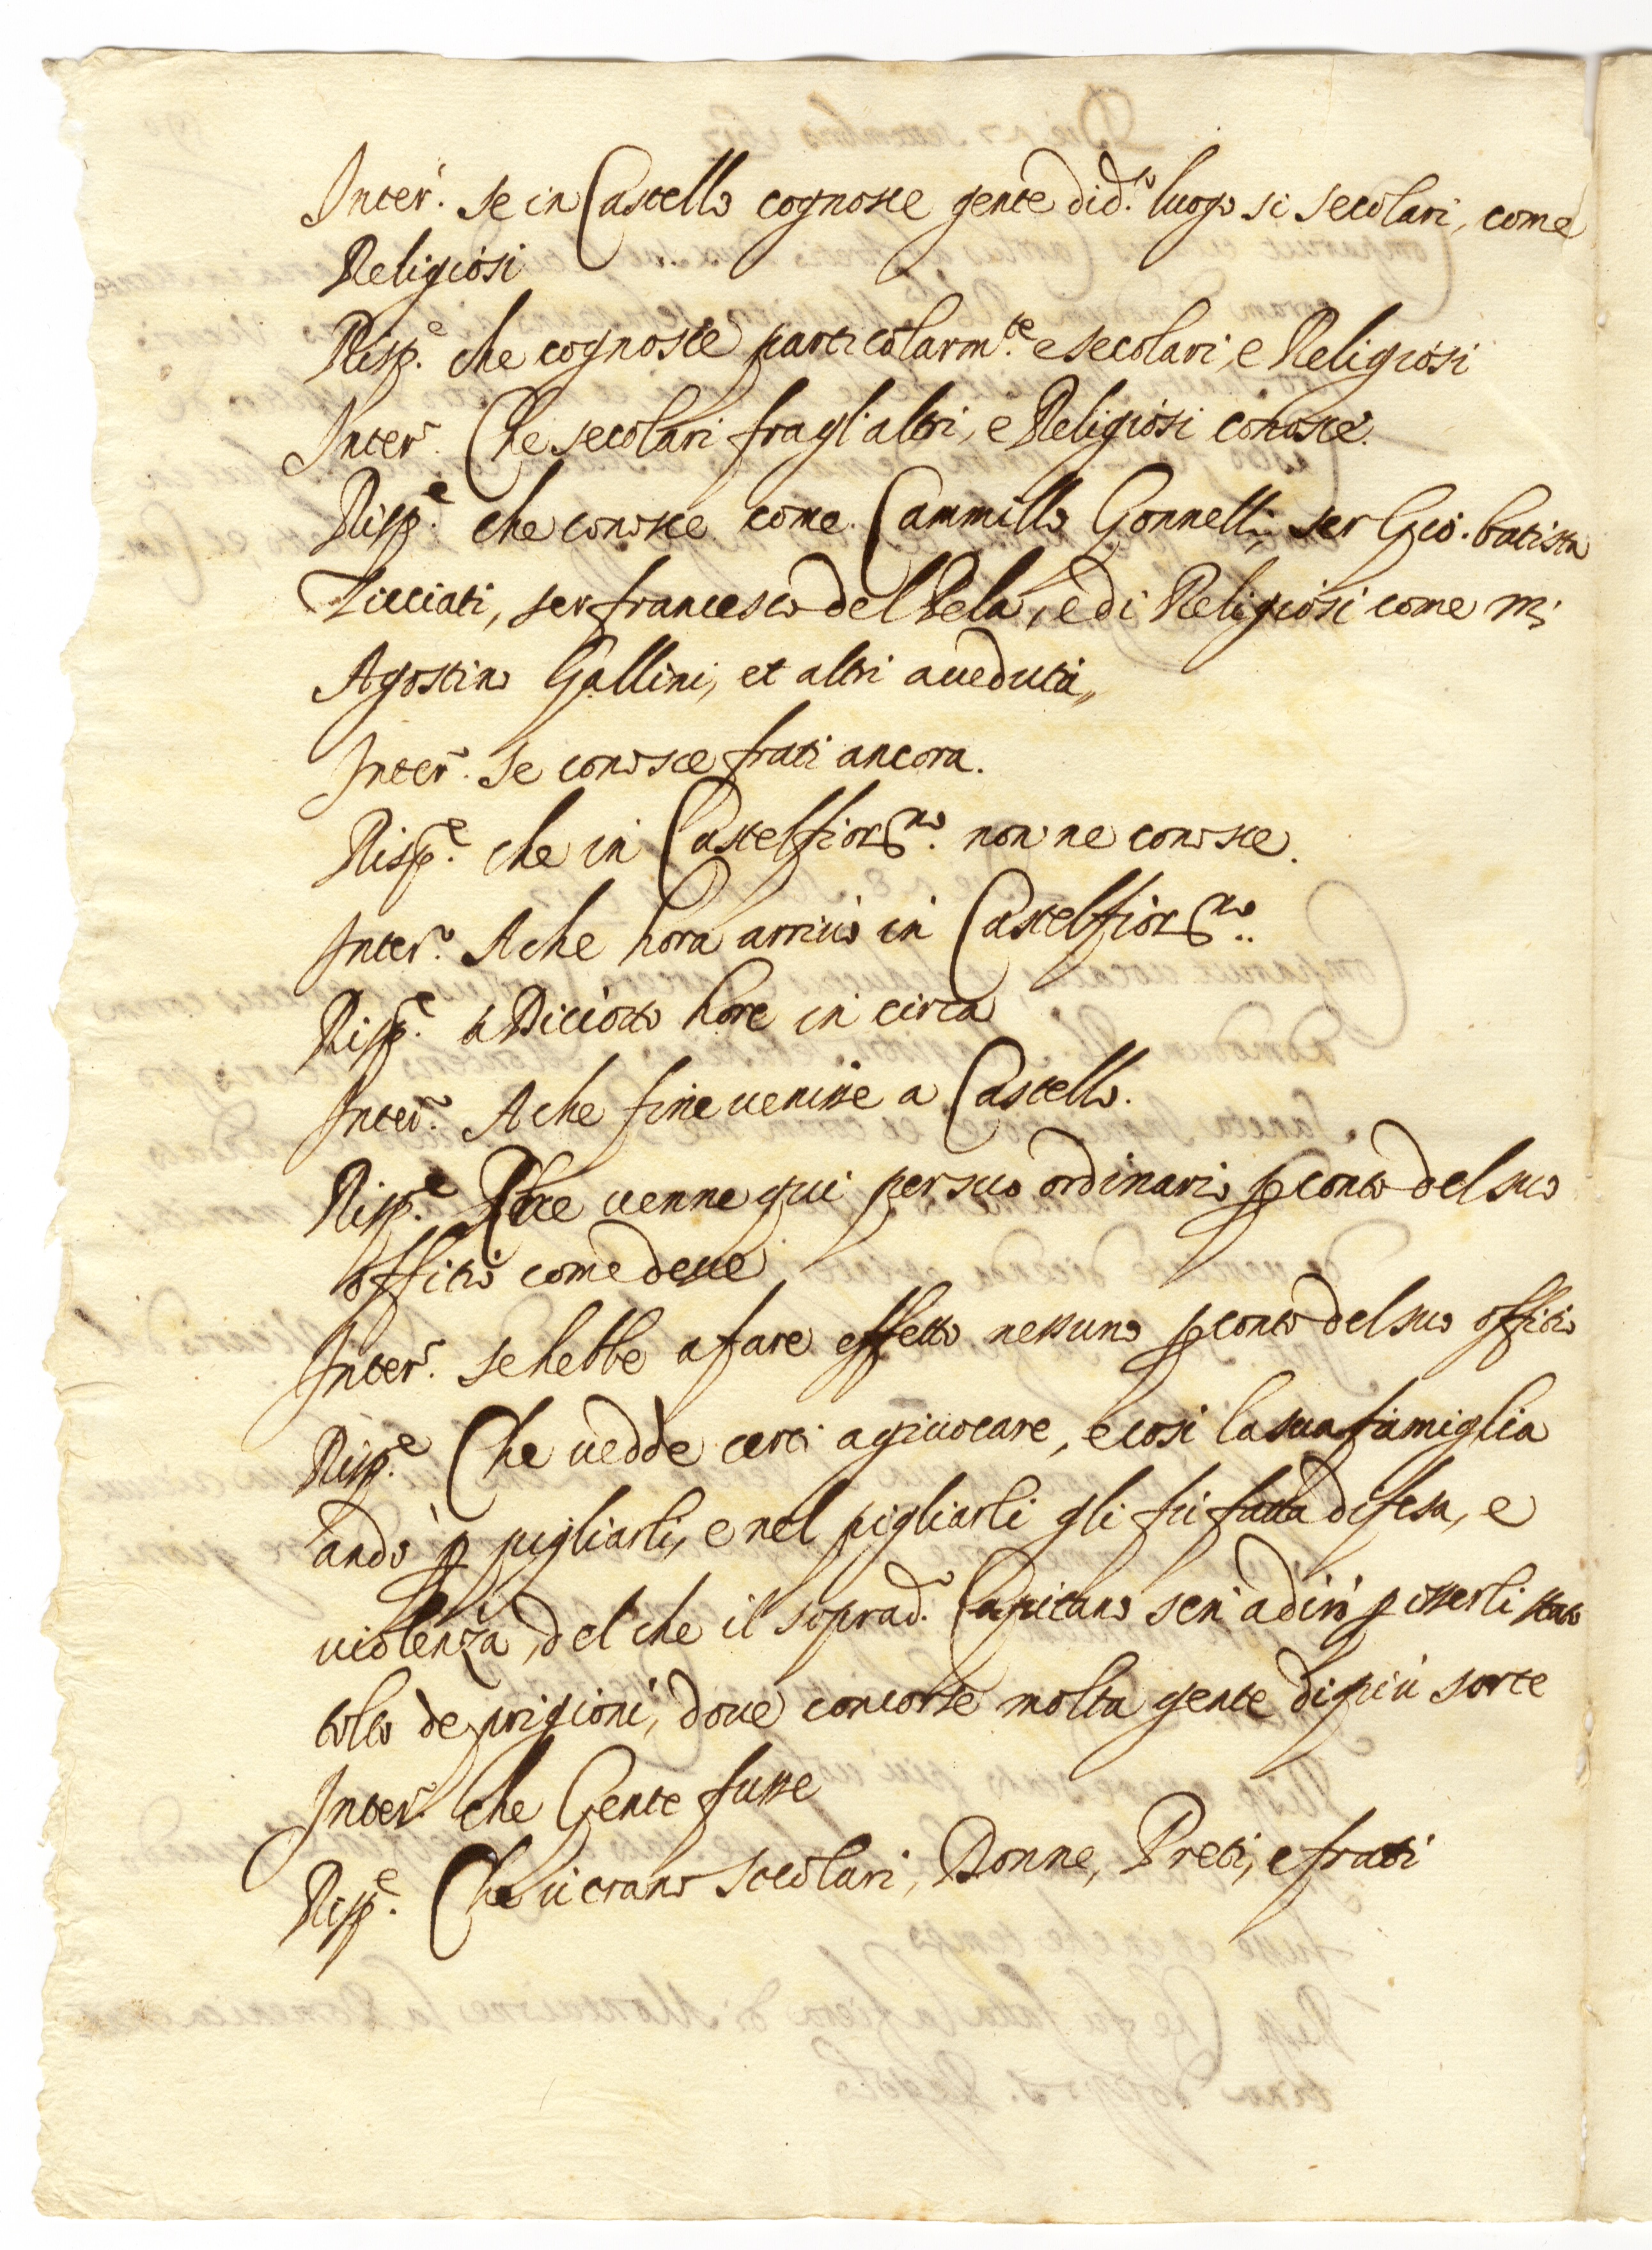 Inter.º se in Castello cognosce gente di d.º luogo si secolari, come
Religiosi
Risp.e che cognosce particolarm.te e secolari, e Religiosi
Inter.º Che secolari fragl'altri, e Religiosi conosce.
Risp.e che conosce come Cammillo Gonnelli, ser Gio. batista
Ticciati, ser francesco del Pela, e di Religiosi come m.
Agostino Gallini, et altri aveduta,,
Inter.º se conosce frati ancora.
Risp.e che in Castelfior.no non ne conosce.
Inter.º A che hora arrivò in Castelfior.no
Risp.e a Diciotto hore in circa
Inter.º A che fine venisse a Castello.
Risp.e Che venne qui per suo ordinario p conto del suo
offitio come deve
Inter.º se hebbe a fare effetto nessuno p conto del suo offitio
Risp.e Che vedde certi a giuocare, e così la sua famiglia
andò p pigliarli, e nel pigliarli gli fu fatta difesa, e
violenza, del che il soprad.º Capitano sen' adirò p esserli stato
tolto de prigioni, dove concorse molta gente di più sorte
Inter.º che Gente fusse
Risp.e Che vi erano secolari, Donne, Preti, e frati